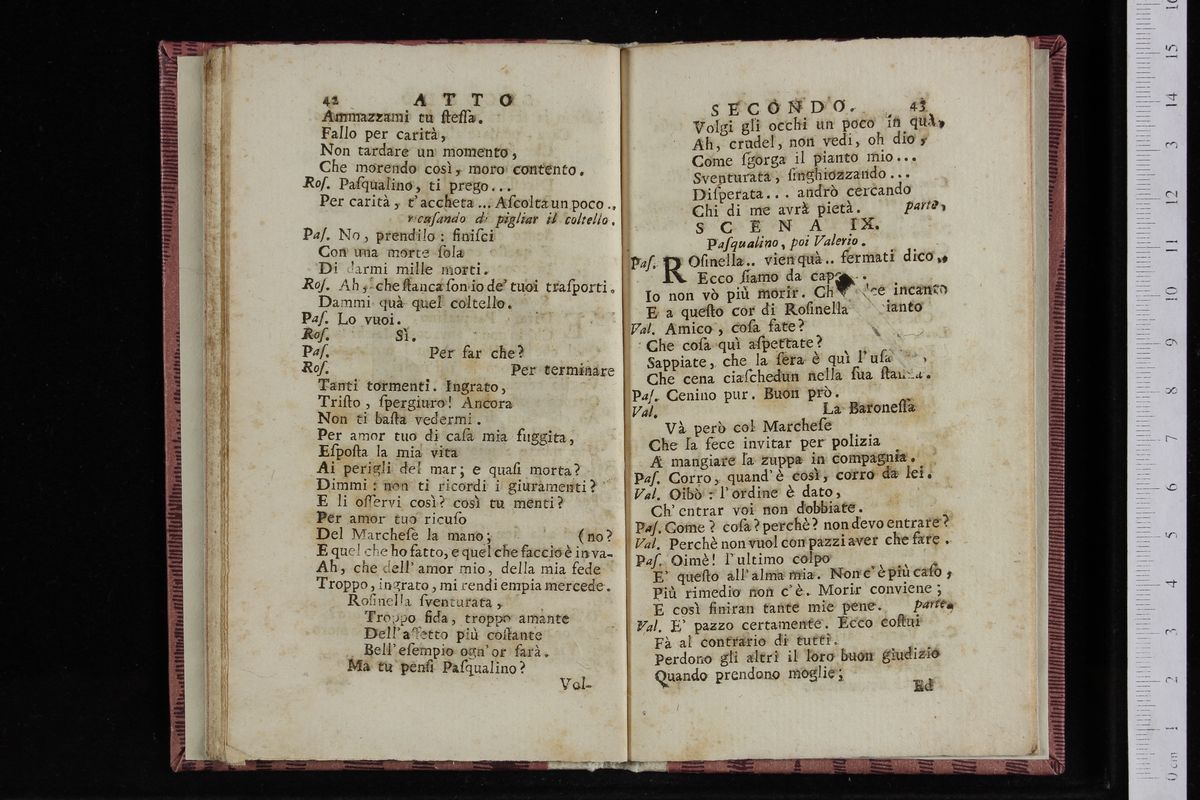 42 ATTO
Ammazzami tu ſteſſa.
Fallo per carità,
Non tardare un momento,
Che morendo così, moro contento.
Roſ. Paſqualino, ti prego...
Per carità, t'accheta... Aſcolta un poco..
ricuſando di pigliar il coltello.
Paſ. No, prendilo: finiſci
Con una morte ſola
Di darmi mille morti.
Roſ. Ah, che ſtanca ſon io de' tuoi traſporti.
Dammi quà quel coltello.
Paſ. Lo vuoi.
Roſ. Sì.
Paſ. Per far che?
Roſ. Per terminare
Tanti tormenti. Ingrato,
Triſto, ſpergiuro! Ancora
Non ti baſta vedermi.
Per amor tuo di caſa mia fuggita,
Eſpoſta la mia vita
Ai perigli del mar; e quaſi morta?
Dimmi: non ti ricordi i giuramenti?
E li oſſervi così? così tu menti?
Per amor tuo ricuſo
Del Marcheſe la mano; (no?
E quel che ho fatto, e quel che faccio è in va-
Ah, che dell'amor mio, della mia fede
Troppo, ingrato, mi rendi empia mercede.
Roſinella ſventurata,
Troppo fida, troppo amante
Dell'affetto più coſtante
Bell'eſempio ogn'or ſarà.
Ma tu penſi Paſqualino?
Vol-
SECONDO. 43
Volgi gli occhi un poco in quà,
Ah, crudel, non vedi, oh dio,
Come ſgorga il pianto mio...
Sventurata, ſinghiozzando...
Diſperata... andrò cercando
Chi di me avrà pietà. parte,
SCENA IX.
Paſqualino, poi Valerio.
Paſ. ROſinella.. vien quà.. fermati dico..
Ecco ſiamo da
Io non vò più morir. incanto
E a queſto cor di Roſinella
Val. Amico, coſa fate?
Che coſa quì aſpettate?
Sappiate, che la ſera è quì l'
Che cena ciaſchedun nella ſua
Paſ. Cenino pur. Buon prò.
Val. La Baroneſſa
Và però col Marcheſe
Che la fece invitar per polizia
A mangiare la zuppa in compagnia.
Paſ. Corro, quand'è così, corro da lei.
Val. Oibò: l'ordine è dato,
Ch'entrar voi non dobbiate.
Paſ. Come? coſa? perchè? non devo entrare?
Val. Perchè non vuol con pazzi aver che fare.
Paſ. Oimè! l'ultimo colpo
E' queſto all'alma mia. Non c'è più caſo,
Più rimedio non c'è. Morir conviene;
E così finiran tante mie pene. parte.
Val. E' pazzo certamente. Ecco coſtui
Fà al contrario di tutti.
Perdono gli altri il loro buon giudizio
Quando prendono moglie;
Ed
0 cm 1 2 3 4 5 6 7 8 9 10 11 12 13 14 15 16